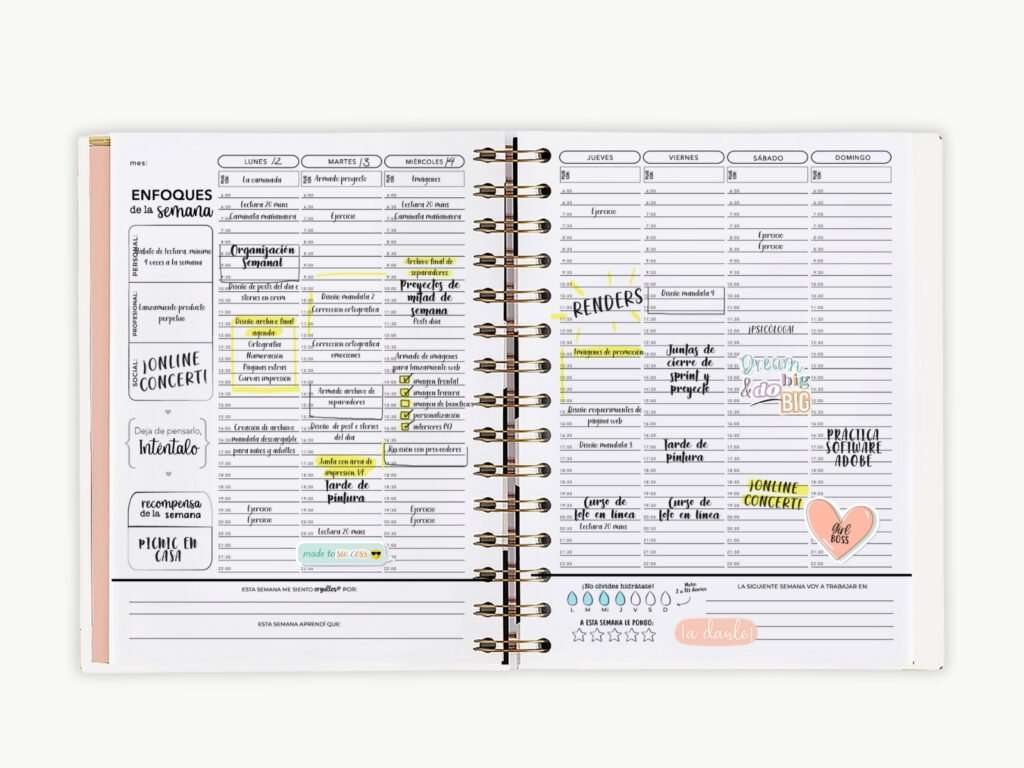 mes:
ENFOQUES
de la semana
PERSONAL:
Hábito de lectura, mínimo
4 veces a la semana
PROFESIONAL:
Lanzamiento producto
perpetuo
SOCIAL:
¡ONLINE
CONCERT!
Deja de pensarlo,
Inténtalo
recompensa
de la semana
PICNIC EN
CASA
LUNES 12
La caminada
Lectura 20 mins
Caminata mañanera
Organización
Semanal
Diseño de posts del día e
stories en orem
Diseño archivo final
agenda
Ortografía
Numeración
Páginas extras
Curvas impresión
Creación de archivo
mandala descargable
para niños y adultos
Ejercicio
Ejercicio
MARTES 13
Armado proyecto
Ejercicio
Diseño mandala 2
Corrección ortográfica
Corrección ortográfica
emociones
Armado archivo de
separadores
Diseño de post e stories
del día
Junta con área de
impresión VF
Tarde de
pintura
Lectura 20 mins
made to success
MIÉRCOLES 14
Imágenes
Lectura 20 mins
Caminata mañanera
Archivo final de
separadores
Proyectos de
mitad de
semana
Posts día
Armado de imágenes
para lanzamiento web
imagen frontal
imagen trasera
imagen de beneficios
personalización
interiores PQ
Reunión con proveedores
Ejercicio
Ejercicio
ESTA SEMANA ME SIENTO orgullos@ POR:
ESTA SEMANA APRENDÍ QUE:
JUEVES
Ejercicio
RENDERS
Imágenes de promoción
Diseño requerimientos de
página web
Diseño mandala 3
Curso de
foto en línea
Lectura 20 mins
VIERNES
Diseño mandala 4
Juntas de
cierre de
sprint y
proyecto
Tarde de
pintura
Curso de
foto en línea
SÁBADO
Ejercicio
Ejercicio
¡PSICÓLOGA!
Dream
big
& do BIG
¡ONLINE
CONCERT!
DOMINGO
PRÁCTICA
SOFTWARE
ADOBE
girl
BOSS
¡No olvides hidrátate!
L M Mi J V S D
A ESTA SEMANA LE PONGO:
¡a darle!
LA SIGUIENTE SEMANA VOY A TRABAJAR EN: